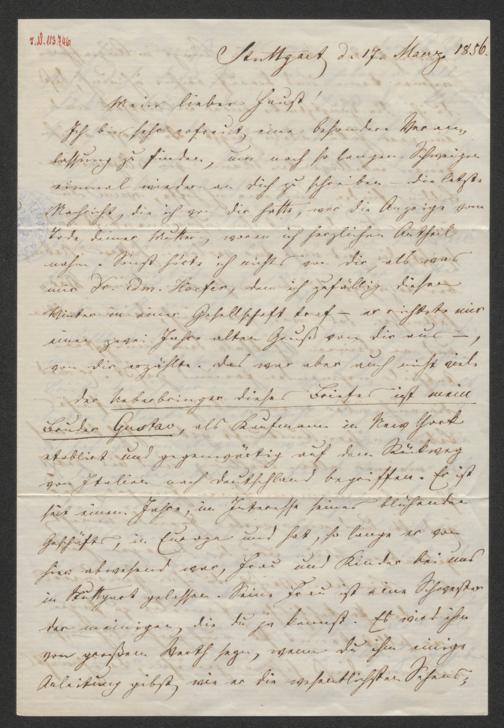 I.N. 113.746
Stuttgart d. 17. März 1856.
Mein lieber Faust!
Ich bin sehr erfreut, eine besondere Veran,
lassung zu finden, um nach so langem Schweigen
einmal wieder an dich zu schreiben – die letzte
Nachricht, die ich von dir hatte, war die Anzeige vom
Tode deiner Mutter, woran ich herzlichen Antheil
nahm. Sonst hörte ich nichts von dir, als was
mir Dr. Edm. den ich zufällig diesen
Winter in einer Gesellschaft traf – er richtete mir
einen zwei Jahre alten Gruß von dir aus –,
von dir erzählte. Das war aber auch nicht viel.
Der Ueberbringer dieses Briefes ist mein
Bruder Gustav, als Kaufmann in New York
etablirt und gegenwärtig auf dem Rückweg
von Italien nach Deutschland begriffen. Er ist
seit einem Jahre, im Interesse seines blühenden
Geschäfts, in Europa und hat, so lange er von
hier abwesend war, Frau und Kinder bei uns
in Stuttgart gelassen. Seine Frau ist eine Schwester
der meinigen, die du ja kennst. Es wird ihm
von großem Werth seyn, wenn du ihm einige
Anleitung gibst, wie er die wesentlichsten Sehens,